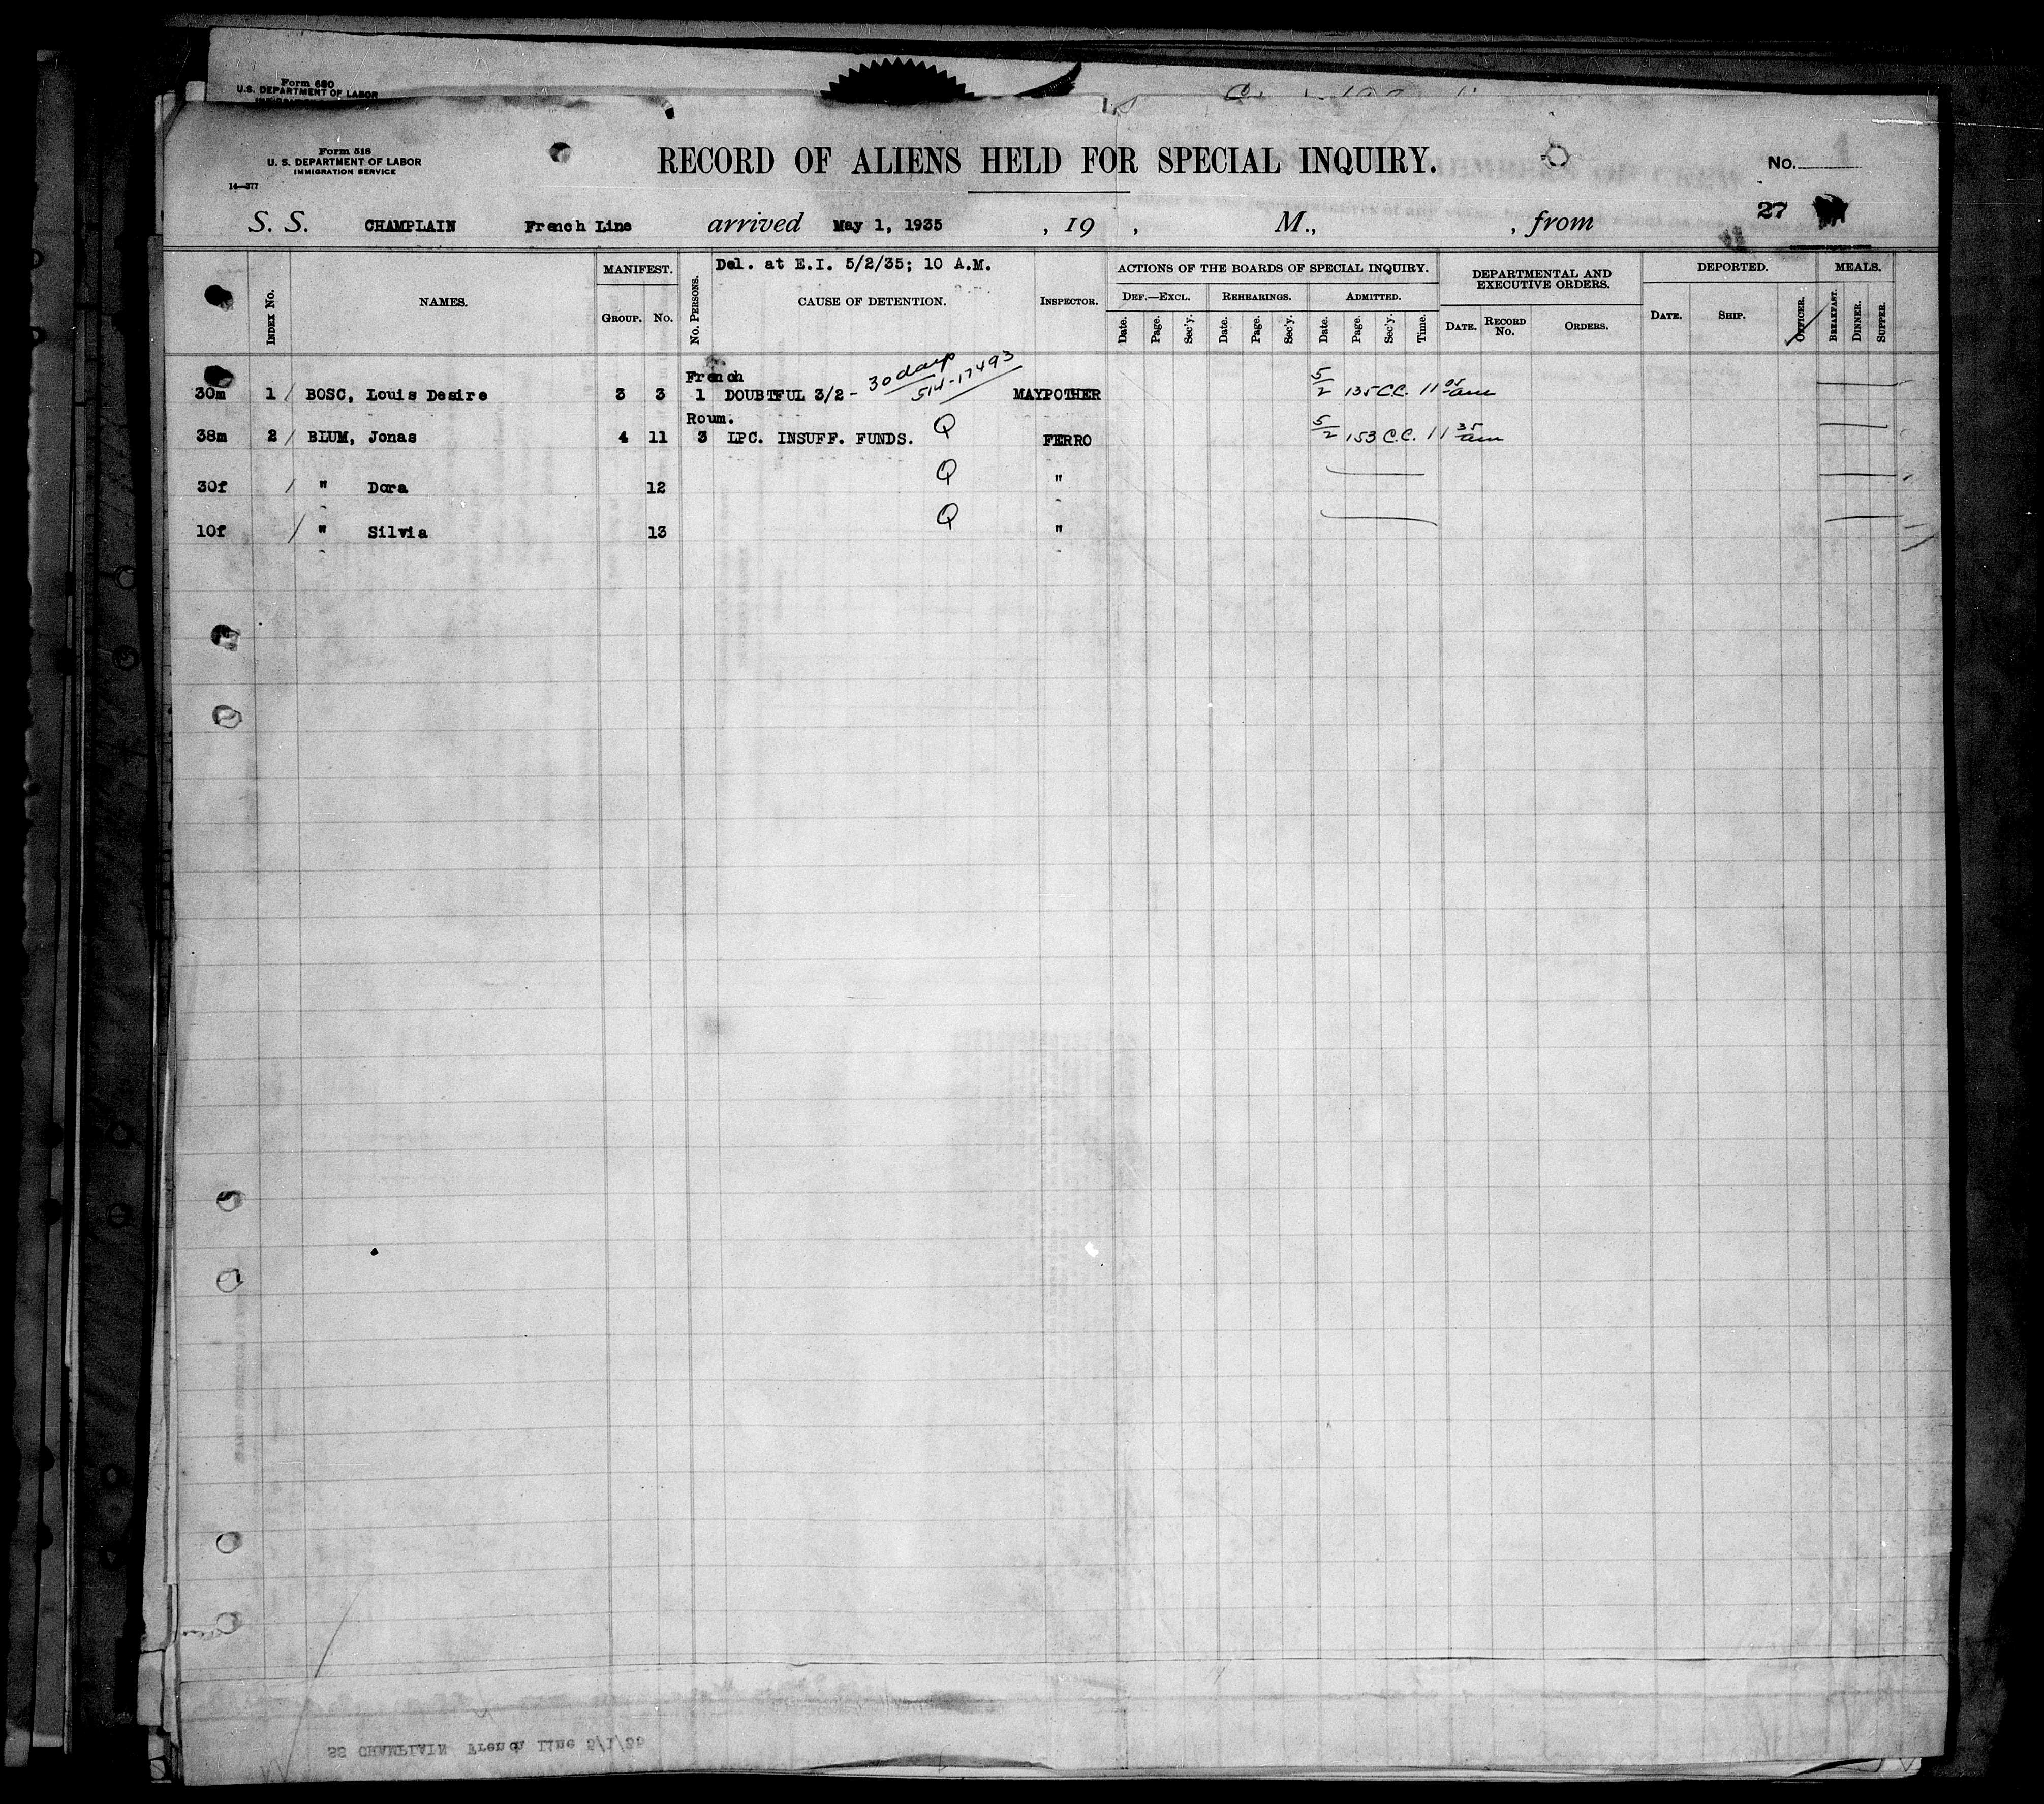 Form 680
U. S. DEPARTMENT OF LABOR
Form 518
U. S. DEPARTMENT OF LABOR
IMMIGRATION SERVICE
14—377
RECORD OF ALIENS HELD FOR SPECIAL INQUIRY.
No. 1
27
S. S. CHAMPLAIN French Line arrived May 1, 1935 , 19 , M., , from
INDEX No.
NAMES.
MANIFEST.
GROUP. No.
No. PERSONS.
Del. at E.I. 5/2/35; 10 A.M.
CAUSE OF DETENTION.
INSPECTOR.
ACTIONS OF THE BOARDS OF SPECIAL INQUIRY.
DEF.—EXCL. REHEARINGS. ADMITTED.
Date. Page. Sec'y. Date. Page. Sec'y. Date. Page. Sec'y. Time.
DEPARTMENTAL AND
EXECUTIVE ORDERS.
DATE. RECORD No. ORDERS.
DEPORTED.
DATE. SHIP. OFFICER.
MEALS.
BREAKFAST. DINNER. SUPPER.
French
30m 1 / BOSC, Louis Desire 3 3 1 DOUBTFUL 3/2 - 30 days 514-17493 MAYPOTHER 5/2 135 C.C. 11 05 am
Roum.
38m 2 / BLUM, Jonas 4 11 3 LPC. INSUFF. FUNDS. Q FERRO 5/2 153 C.C. 11 35 am
30f / " Dora 12 Q "
10f / " Silvia 13 Q "
SS CHAMPLAIN French Line 5/1/35